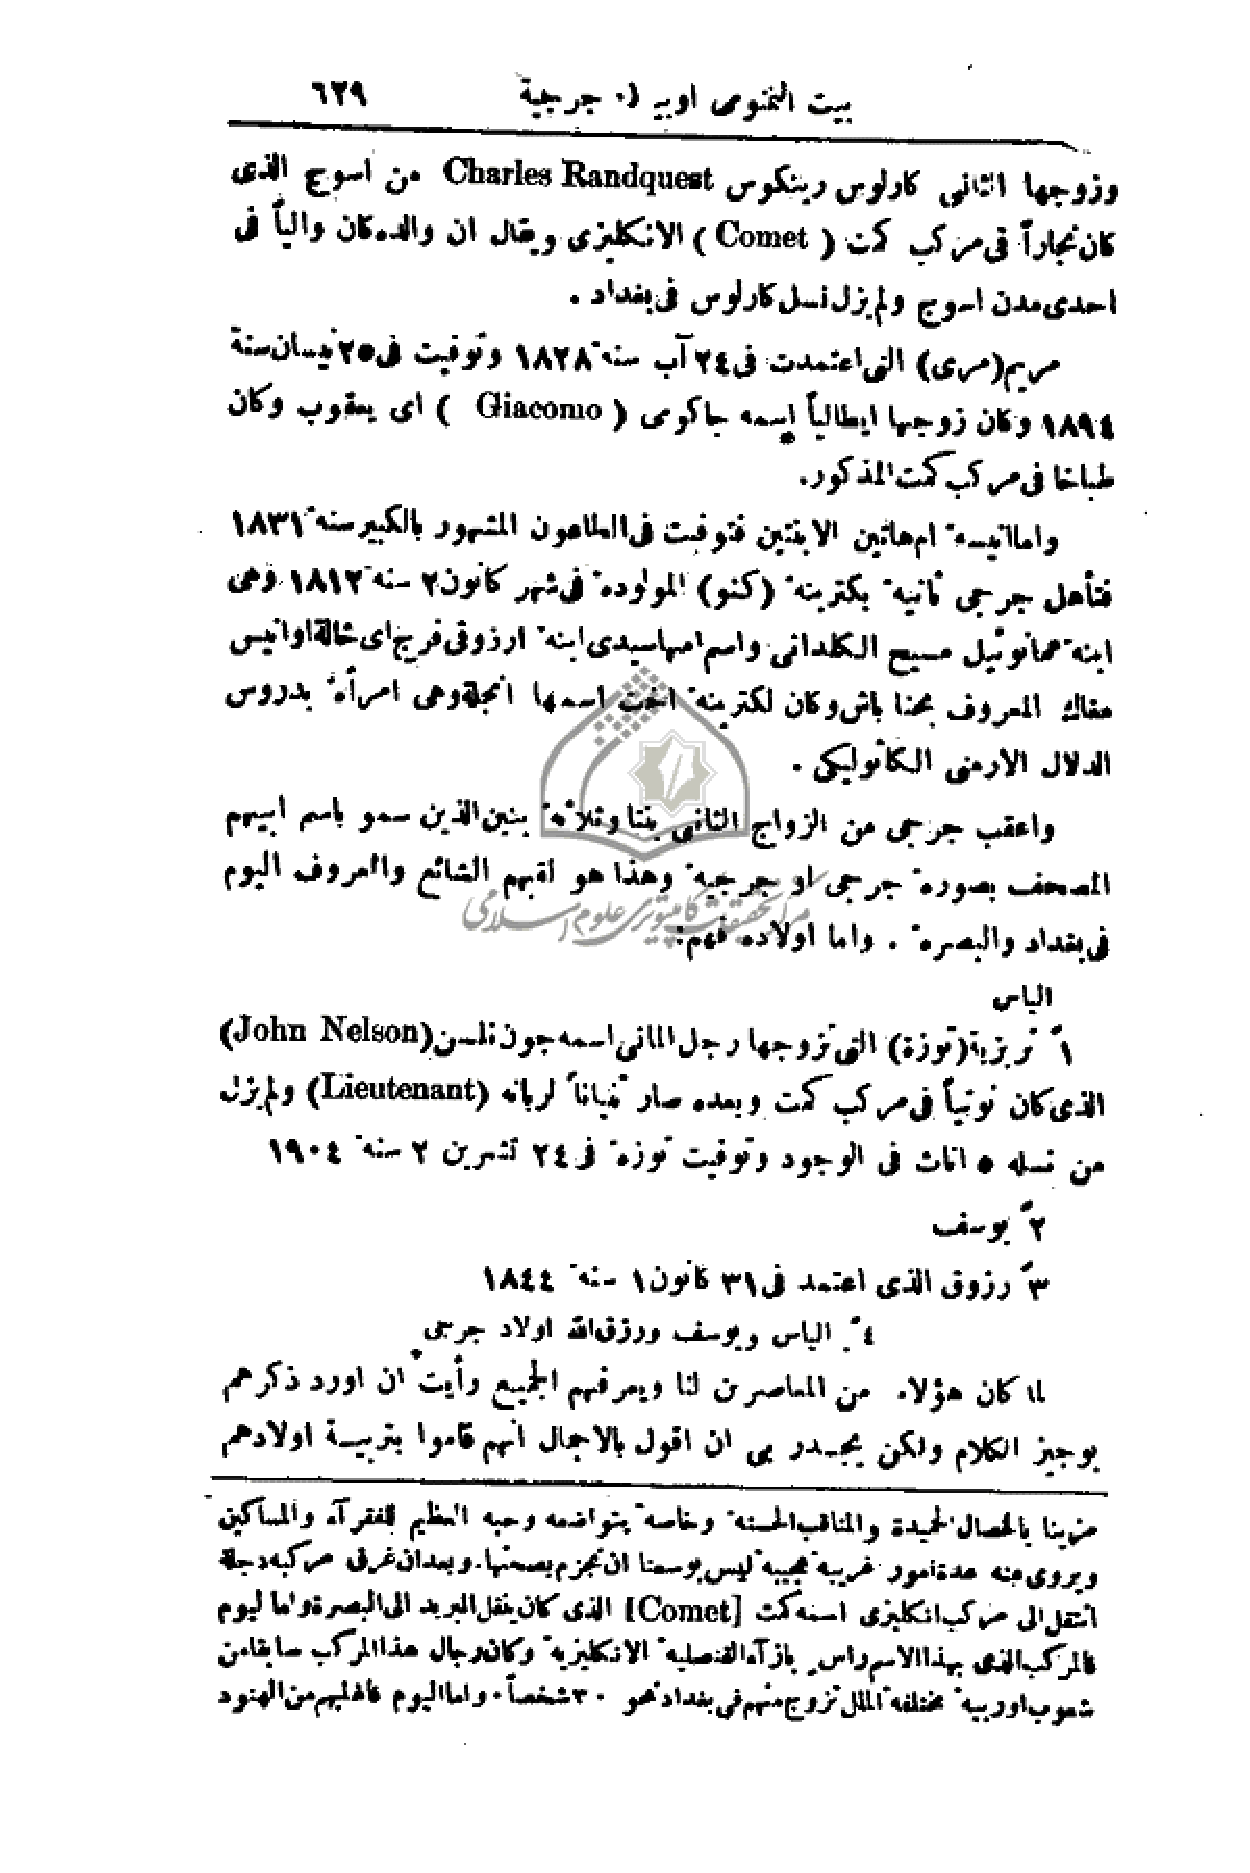 بيت النمنوى اوبيه (٠ جرجية ٦٢٩
وزوجها الثانى كارلوس رينكوس Charles Randquest من اسوج الذى
كان نجاراً فى مركب كمت ( Comet ) الانكليزى ويقال ان والده كان والياً فى
احدى مدن اسوج ولم يزل نسل كارلوس فى بغداد .
مريم (مرى) التى اعتمدت فى ٢٤ آب سنة ١٨٢٨ وتوفيت فى ٢٥ نيسان سنة
١٨٩٤ وكان زوجها ايطالياً إسمه جاكومى ( Giacomo ) اى يعقوب وكان
طباخا فى مركب كمت المذكور.
واما انيسة ام هاتين الابنتين فتوفيت فى الطاعون المشهور بالكبير سنة ١٨٣١
فتأهل جرجى ثانية بكترينة (كنو) المولودة فى شهر كانون ٢ سنة ١٨١٢ وهى
ابنة عمانوئيل مسيح الكلدانى واسم امها سيدى ابنة ارزوقى فريج اى خالة اوانيس
مقاك المعروف بحنا باش وكان لكترينة اخت اسمها انجلة وهى امرأة بدروس
الدلال الارمنى الكاثوليكى .
واعقب جرجى من الزواج الثانى بنتا وثلاثة بنين الذين سمو باسم ابيهم
المصحف بصورة جرجى او جرجية وهذا هو لقبهم الشائع والمعروف اليوم
فى بغداد والبصرة . واما اولاده فهم:
مركز تحقيقات كامپيوترى علوم اسلامى
الياس
١ً تريزية (توزة) التى تزوجها رجل المانى اسمه جون نلسن (John Nelson)
الذى كان نوتياً فى مركب كمت وبعده صار ثنياناً لربانه (Lieutenant) ولم يزل
من نسله ٥ اناث فى الوجود وتوفيت توزة فى ٢٤ تشرين ٢ سنة ١٩٠٤
٢ً يوسف
٣ً رزوق الذى اعتمد فى ٣١ كانون ١ سنة ١٨٤٤
٤ً . الياس ويوسف ورزق الله اولاد جرجى
لما كان هؤلاء من المعاصرين لنا ويعرفهم الجميع رأيت ان اورد ذكرهم
بوجيز الكلام ولكن يجدر بى ان اقول بالاجمال انهم قاموا بتربية اولادهم
مزينا بالخصال الحميدة والمناقب الحسنة وخاصة بتواضعه وحبه العظيم للفقرآء والمساكين
ويروى عنه عدة امور غريبة عجيبة ليس بوسعنا ان نجزم بصحتها. وبعد ان غرق مركبه دجلة
انتقل الى مركب انكليزى اسمه كمت [Comet] الذى كان ينقل البريد الى البصرة واما اليوم
فالمركب الذى بهذا الاسم راس بازآء القنصلية الانكليزية وكان رجال هذا المركب سابقا من
شعوب اوربية مختلفة الملل تزوج منهم فى بغداد نحو ٣٠ شخصاً. واما اليوم فاغلبهم من الهنود